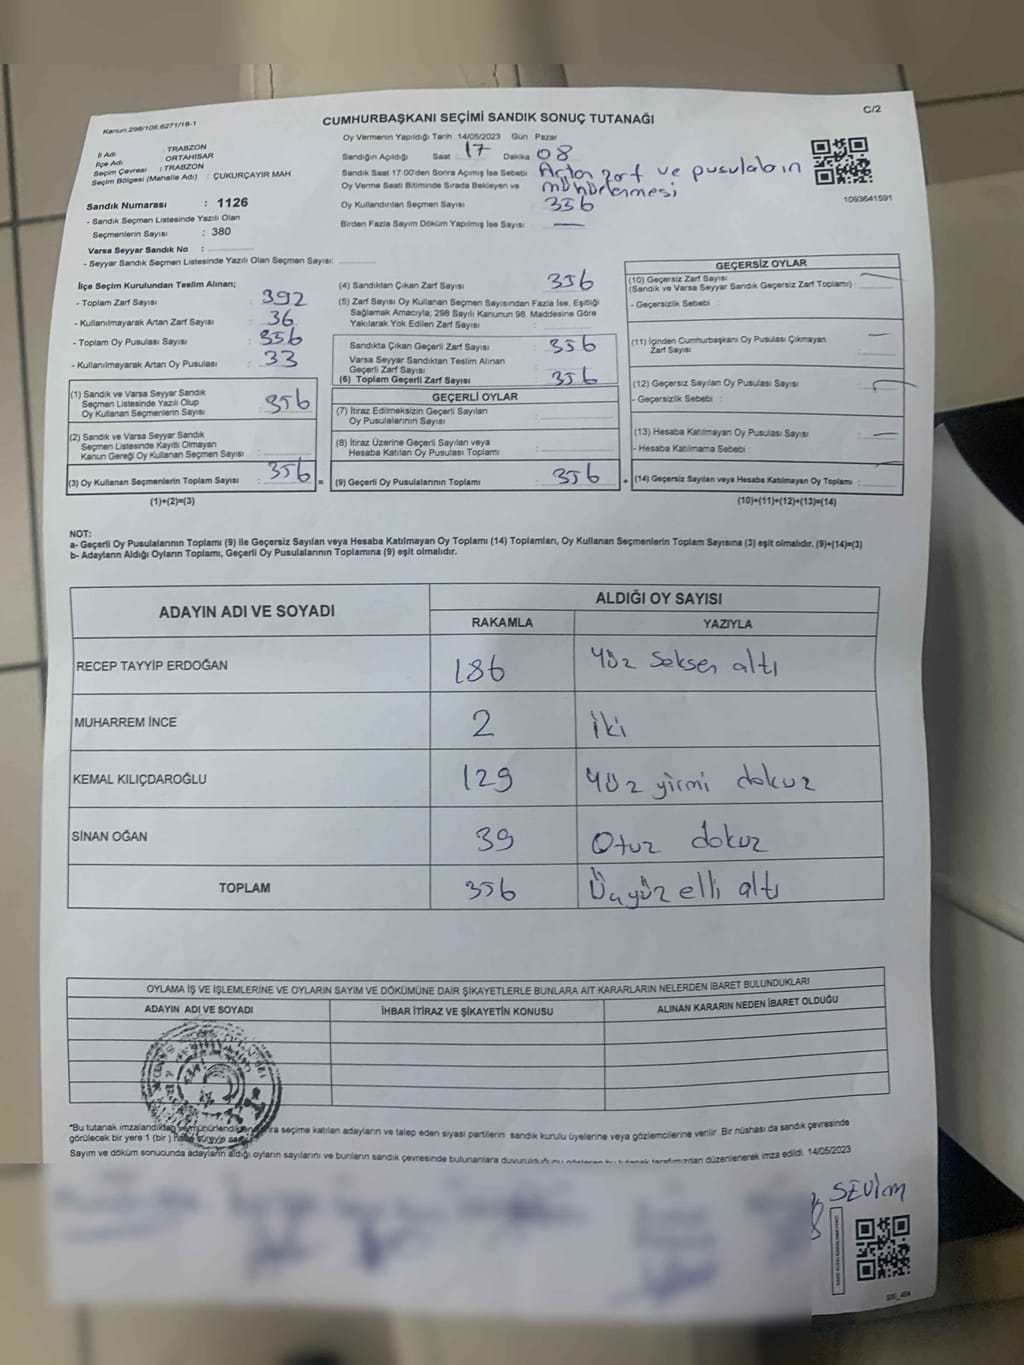 Kanun:298/105,6271/18-1
CUMHURBAŞKANI SEÇİMİ SANDIK SONUÇ TUTANAĞI
C/2
İl Adı : TRABZON
İlçe Adı : ORTAHİSAR
Seçim Çevresi : TRABZON
Seçim Bölgesi (Mahalle Adı) : ÇUKURÇAYIR MAH
Sandık Numarası : 1126
- Sandık Seçmen Listesinde Yazılı Olan
Seçmenlerin Sayısı : 380
Varsa Seyyar Sandık No :
- Seyyar Sandık Seçmen Listesinde Yazılı Olan Seçmen Sayısı:
Oy Vermenin Yapıldığı Tarih 14/05/2023 Gün Pazar
Sandığın Açıldığı Saat 17 Dakika 08
Sandık Saat 17:00'den Sonra Açılmış İse Sebebi Artan zarf ve pusulaların
mühürlenmesi
Oy Verme Saati Bitiminde Sırada Bekleyen ve
Oy Kullandırılan Seçmen Sayısı 356
Birden Fazla Sayım Döküm Yapılmış İse Sayısı —
1093641591
İlçe Seçim Kurulundan Teslim Alınan;
- Toplam Zarf Sayısı : 392
- Kullanılmayarak Artan Zarf Sayısı : 36
- Toplam Oy Pusulası Sayısı : 356
- Kullanılmayarak Artan Oy Pusulası : 33
(1) Sandık ve Varsa Seyyar Sandık
Seçmen Listesinde Yazılı Olup
Oy Kullanan Seçmenlerin Sayısı : 356
(2) Sandık ve Varsa Seyyar Sandık
Seçmen Listesinde Kayıtlı Olmayan
Kanun Gereği Oy Kullanan Seçmen Sayısı :
(3) Oy Kullanan Seçmenlerin Toplam Sayısı : 356 =
(1)+(2)=(3)
(4) Sandıktan Çıkan Zarf Sayısı : 356
(5) Zarf Sayısı Oy Kullanan Seçmen Sayısından Fazla İse, Eşitliği
Sağlamak Amacıyla; 298 Sayılı Kanunun 98. Maddesine Göre
Yakılarak Yok Edilen Zarf Sayısı :
Sandıkta Çıkan Geçerli Zarf Sayısı : 356
Varsa Seyyar Sandıktan Teslim Alınan
Geçerli Zarf Sayısı :
(6) Toplam Geçerli Zarf Sayısı : 356
GEÇERLİ OYLAR
(7) İtiraz Edilmeksizin Geçerli Sayılan
Oy Pusulalarının Sayısı :
(8) İtiraz Üzerine Geçerli Sayılan veya
Hesaba Katılan Oy Pusulası Toplamı :
(9) Geçerli Oy Pusulalarının Toplamı : 356 +
GEÇERSİZ OYLAR
(10) Geçersiz Zarf Sayısı
(Sandık ve Varsa Seyyar Sandık Geçersiz Zarf Toplamı) : —
- Geçersizlik Sebebi :
(11) İçinden Cumhurbaşkanı Oy Pusulası Çıkmayan
Zarf Sayısı : —
(12) Geçersiz Sayılan Oy Pusulası Sayısı : —
- Geçersizlik Sebebi :
(13) Hesaba Katılmayan Oy Pusulası Sayısı : —
- Hesaba Katılmama Sebebi :
(14) Geçersiz Sayılan veya Hesaba Katılmayan Oy Toplamı : —
(10)+(11)+(12)+(13)=(14)
NOT:
a- Geçerli Oy Pusulalarının Toplamı (9) ile Geçersiz Sayılan veya Hesaba Katılmayan Oy Toplamı (14) Toplamları, Oy Kullanan Seçmenlerin Toplam Sayısına (3) eşit olmalıdır. (9)+(14)=(3)
b- Adayların Aldığı Oyların Toplamı, Geçerli Oy Pusulalarının Toplamına (9) eşit olmalıdır.
ADAYIN ADI VE SOYADI ALDIĞI OY SAYISI
RAKAMLA YAZIYLA
RECEP TAYYİP ERDOĞAN 186 yüz seksen altı
MUHARREM İNCE 2 iki
KEMAL KILIÇDAROĞLU 129 yüz yirmi dokuz
SİNAN OĞAN 39 Otuz dokuz
TOPLAM 356 Üçyüz elli altı
OYLAMA İŞ VE İŞLEMLERİNE VE OYLARIN SAYIM VE DÖKÜMÜNE DAİR ŞİKAYETLERLE BUNLARA AİT KARARLARIN NELERDEN İBARET BULUNDUKLARI
ADAYIN ADI VE SOYADI İHBAR İTİRAZ VE ŞİKAYETİN KONUSU ALINAN KARARIN NEDEN İBARET OLDUĞU
*Bu tutanak imzalandıktan ve mühürlendikten sonra seçime katılan adayların ve talep eden siyasi partilerin sandık kurulu üyelerine veya gözlemcilerine verilir. Bir nüshası da sandık çevresinde
görülecek bir yere 1 (bir) hafta süreyle
Sayım ve döküm sonucunda adayların aldığı oyların sayılarını ve bunların sandık çevresinde bulunanlara duyurulduğunu gösteren bu tutanak tarafımızdan düzenlenerek imza edildi. 14/05/2023
SEVİM